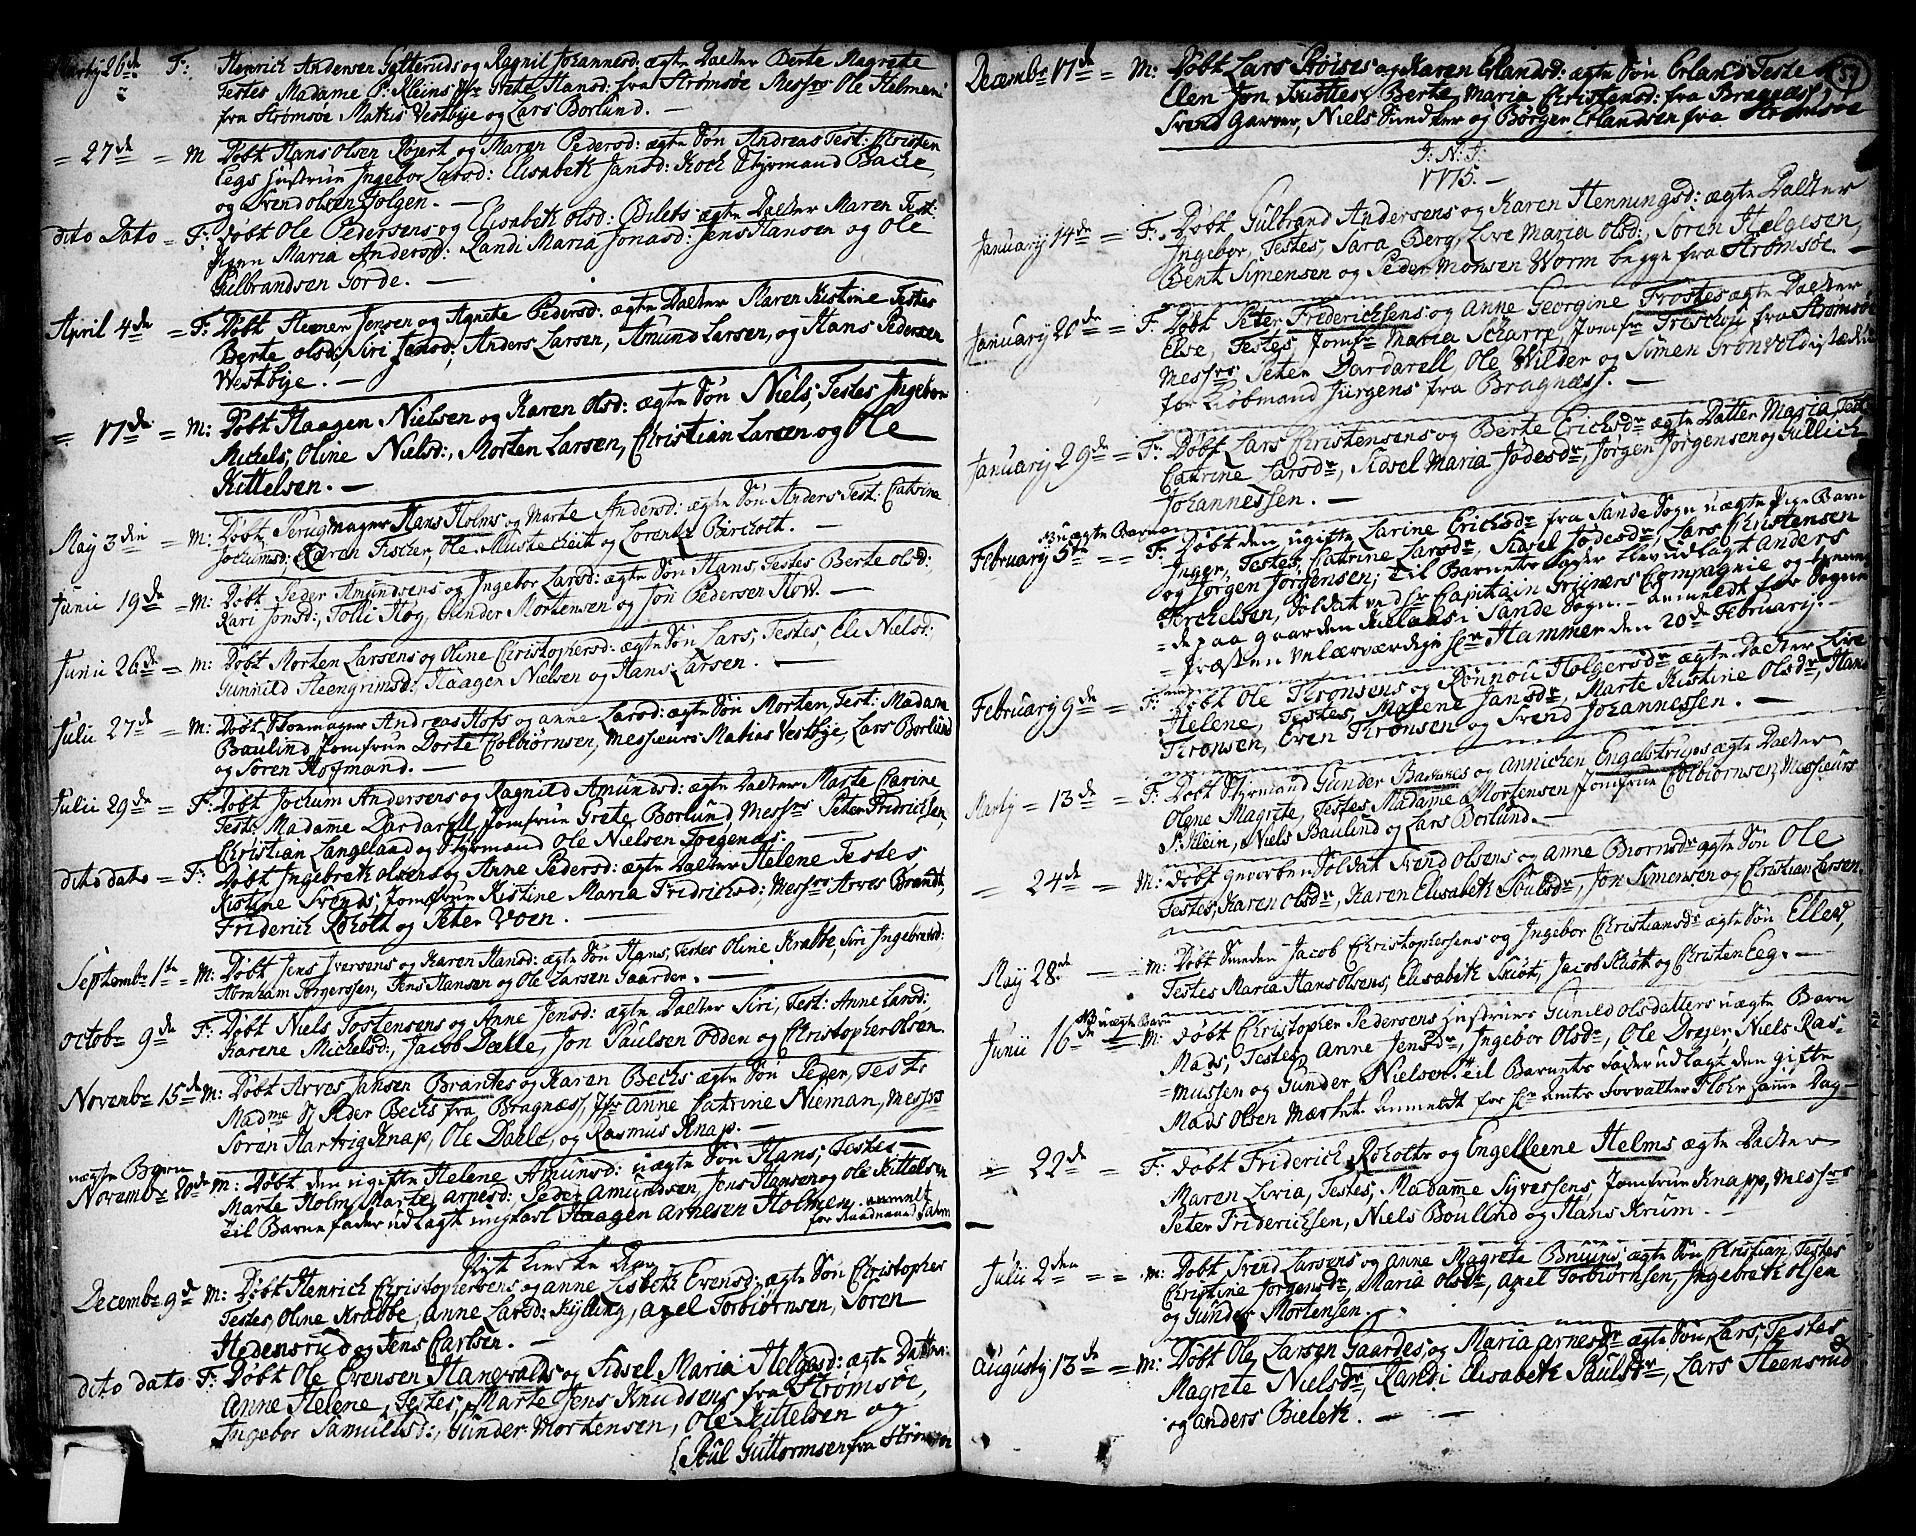 Marty 26de F: Henrich Andersen Gulteruds og Ragnil Johannesd: ægte Datter Berte Magrete
Testes Madame P: Kleins Jfr Grete Hansd: fra Strømsøe Messrs Ole Helmen
fra Strømsøe Mathis Vestbye og Lars Borlund. —
= 27de = M Døbt Hans Olsen Røjert og Maren Pedersd: ægte Søn Andreas Test: Christen
Legs Hustrue Ingebor Larsd: Elisabeth Jansd: Koch Styrmand Bache
og Svend Olsen Solgen. —
dito Dato = F: Døbt Ole Pedersens og Elisabeth Olsd: Bilets ægte Datter Maren Test:
Pigen Maria Andersd: Landi Maria Jonasd: Jens Hansen og Ole
Gulbrandsen Gorde. —
April 4de = F: Døbt Steener Jensen og Agnete Pedersd: ægte Datter Maren Kistine Testes
Berte Olsd; Siri Jensd; Anders Larsen, Amund Larsen, og Hans Pedersen
Westbye. —
= 17de = M: Døbt Haagen Nielsen og Karen Olsd: ægte Søn Niels, Testes Ingebor
Michels, Oline Nielsd:, Morten Larsen, Christian Larsen og Ole
Kittelsen. —
May 3die = M: Døbt Perugmager Hans Holms og Marte Andersd: ægte Søn Anders Test: Catrine
Jochumsd; Karen Fischer, Ole Mustecheit og Lorentz Bircholt. —
Junii 19de = M: Døbt Peder Amundsens og Ingebor Larsd: ægte Søn Hans, Testes Berte Olsd:
Kari Jonsd:, Tolli Høg, Gunder Mortensen og Jon Pedersen How. —
Junii 26de = M: Døbt Morten Larsens og Oline Christophersd: ægte Søn Lars, Testes, Eli Nielsd:
Gunnild Steengrimsd:, Haagen Nielsen og Hans Larsen. —
Julii 27de = M: Døbt Skomager Andreas Hofs og Anne Larsd: ægte Søn Morten, Test: Madam
Baulind Jomfrue Dorte Colbiørnsen, Messieurs Matias Vestbye, Lars Borlund
og Søren Hofmand. —
Julii 29de = F: Døbt Jochum Andersens og Ragnild Amundsd: ægte Datter Marte Carine
Test: Madame Dardarell Jomfrue Grete Borlund Messrs Peter Fridrichsen,
Christian Langeland og Styrmand Ole Nielsen Togenæs. —
dito dato = F: Døbt Ingebret Olsens og Anne Pedersd: ægte Datter Helene Testes
Kistine Svends, Jomfrue Kistine Maria Fridrichsd: Messrs Arves Brandt
Friderich Roholt og Peter Voen. —
Septembr 1ste = M: Døbt Jens Iversens og Karen Hansd: ægte Søn Hans, Testes Oline Krabbe, Siri Ingebretsd:
Abraham Torgerssen, Jens Hansen og Ole Larsen Gaarder. —
Octobr 9de F: Døbt Niels Tostensens og Anne Jensd: ægte Datter Siri, Test: Anne Larsd:
Karene Michelsd:, Jacob Dælle, Jon Paulsen Odden og Christopher Olsen
Novembr 15de M: Døbt Arves Jansen Brantes og Karen Bechs ægte Søn Peder, Testes
Madme Peder Bechs fra Bragnæs, Jfr Anne Catrine Nieman, Messrs
Søren Hartvig Knap, Ole Dahle, og Rasmus Knap. —
uægte Børn
Novembr 20de M: Døbt den ugifte Helene Amunsd: uægte Søn Hans; Testes —
Marte Holm, Marte Arnesd: Peder Amundsen, Jens Hansen og Ole Kittelsen
til Barnefader udlagt ungkarl Haagen Arnesen Holmen. anmelt
for Raadmand Fahm
Nyt Kirke Aar
Decembr 9de M: Døbt Henrich Christophersens og Anne Lisbeth Evensd: ægte Søn Christopher
Testes, Oline Krabbe, Anne Larsd: Kylling, Axel Torbiørnsen, Søren
Hedensrud og Jens Carlsen. —
dito dato F: Døbt Ole Evensen Hanevalds og Sidsel Maria Helgesd: ægte Datter
Anne Helene, Testes, Marte Jens Knudsens fra Strømsøe,
Ingebor Samuelsd:, Gunder Mortensen, Ole Kittelsen og
Paul Guttormsen fra Strømsøe
57
Decembr 17de = M: Døbt Lars Prøises og Karen Erlandsd: ægte Søn Erland Testes
Elen Jon Skiøttes, Berte Maria Christensd: fra Bragnæs,
Svend Garver, Niels Sundtzer og Børger Erlandsen fra Strømsøe
J: N: J:
1775. —
January 14de = F: Døbt Gulbrand Andersens og Karen Henningsd: ægte Datter
Ingebor, Testes, Sara Berg, Live Maria Olsd:, Søren Helgesen,
Bent Simensen og Peder Monsen Worm begge fra Strømsøe. —
January 20de F. Døbt Peter Friderichsens og Anne Georgine Frostes ægte Datter
Else, Testes, Jomfr Maria Scharp, Jomfr Trischou fra Strømsøe
Messrs Peter Dardarell, Ole Wilder og Simen Grønvold i stæden
for Kiøbmand Jürgens fra Bragnæss. —
January 29de = F: Døbt Lars Christensens og Berte Erichsdr ægte Datter Maria, Test:
Catrine Larsdr, Sidsel Maria Jødesdr, Jørgen Jørgensen og Gullich
Johannessen. —
NB uægte Barn
February 5te = = F: Døbt den ugifte Larine Erichsdr fra Sande Sogn uægte Pige Barn
Inger, Testes, Catrine Larsdr, Sidsel Jødesdr, Lars Christensen
og Jørgen Jørgensen; til Barnets Fader blev udlagt Anders
Kechelsen, Soldat ved Hr Capitain Grüners Compagnie og tienen-
= de paa gaarden Kielaas i Sande Sogn. — Anmeldt for Sogne
= Præsten Velærværdige Hr Hammer den 20de February. —
February 9de = F: Døbt Ole Tronsens og Rønnou Holgersdr ægte Datter Live
Helene, Testes, Marene Jansdr, Marte Kistine Olsdr, Hans
Tronsen, Even Tronsen og Svend Johannessen. —
Marty = 13de = F: Døbt Styrmand Gunder Bachenes og Annichen Engelstrups ægte Datter
Olene Magrete, Testes Madame Mortensen Jomfrue Colbiørnsen, Messieurs
P: Klein, Niels Baulind og Lars Borlund. —
= 24de = M: Døbt gevorben Soldat Svend Olsens og Anne Biornsdr ægte Søn Ole
Testes, Karen Olsdr, Karen Elisabeth Poulsdr, Jon Simensen og Christian Larsen.
May 28de — = M: Døbt Smeden Jacob Christophersens og Ingebor Christiansdr ægte Søn Ellert,
Testes Maria Hans Olsens, Elisabeth Skiøt, Jacob Skiøt og Christen Leg. —
NB uægte Barn
Junii 16de = M: Døbt Christopher Pedersens Hustrues Gunild Olsdatters uægte Barn
Mads, Testes, Anne Jensdr, Ingebor Olsdr, Ole Dreyer, Niels Ras-
= mussen og Gunder Nielsen. til Barnets Fader udlagt den gifte
Mads Olsen Mærket. anmeldt for Hr Amts Forvalter Flohr samme Dag —
= 22de = F: Døbt Friderich Roholts og Engelleene Helms ægte Datter
Maren Livia, Testes, Madame Syversens Jomfrue Knapp, Messrs
Peter Friderichsen, Niels Boulind og Hans Krum. —
Julii 2den = = M: Døbt Svend Larsens og Anne Magrete Bruuns, ægte Søn Christian, Testes
Christine Jørgensdr, Maria Olsdr, Axel Torbiørnsen, Ingebreth Olsen
og Gunder Mortensen. —
Augusty 13de = M: Døbt Ole Larsen Gaardes, og Maria Arnesdr ægte Søn Lars, Testes
Magrete Nielsdr, Randi Elisabeth Paulsdr, Lars Steensrud
og Anders Bieleth. — —